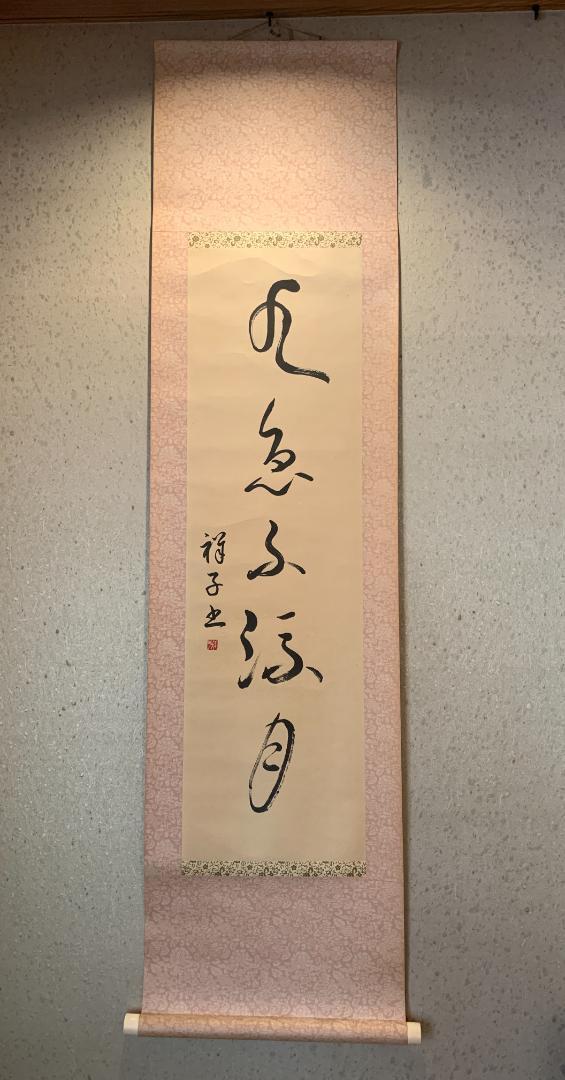 水急不流月
祥子書